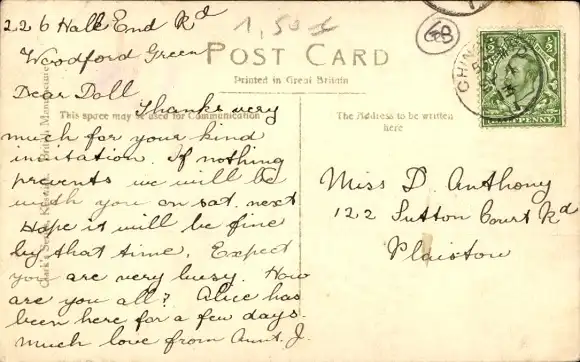 226 Hale End Rd
Woodford Green
1,50
POST CARD
Printed in Great Britain
Dear Doll
This space may be used for Communication
Thanks very
much for your kind
invitation. If nothing
prevents we will be
with you on sat. next
Hope it will be fine
by that time. Expect
you are very busy. How
are you all? Alice has
been here for a few days.
Much love from Aunt. J.
The Address to be written
here
Miss D. Anthony
122 Sutton Court Rd
Plaistow
CHINGFORD
½
½
PENNY